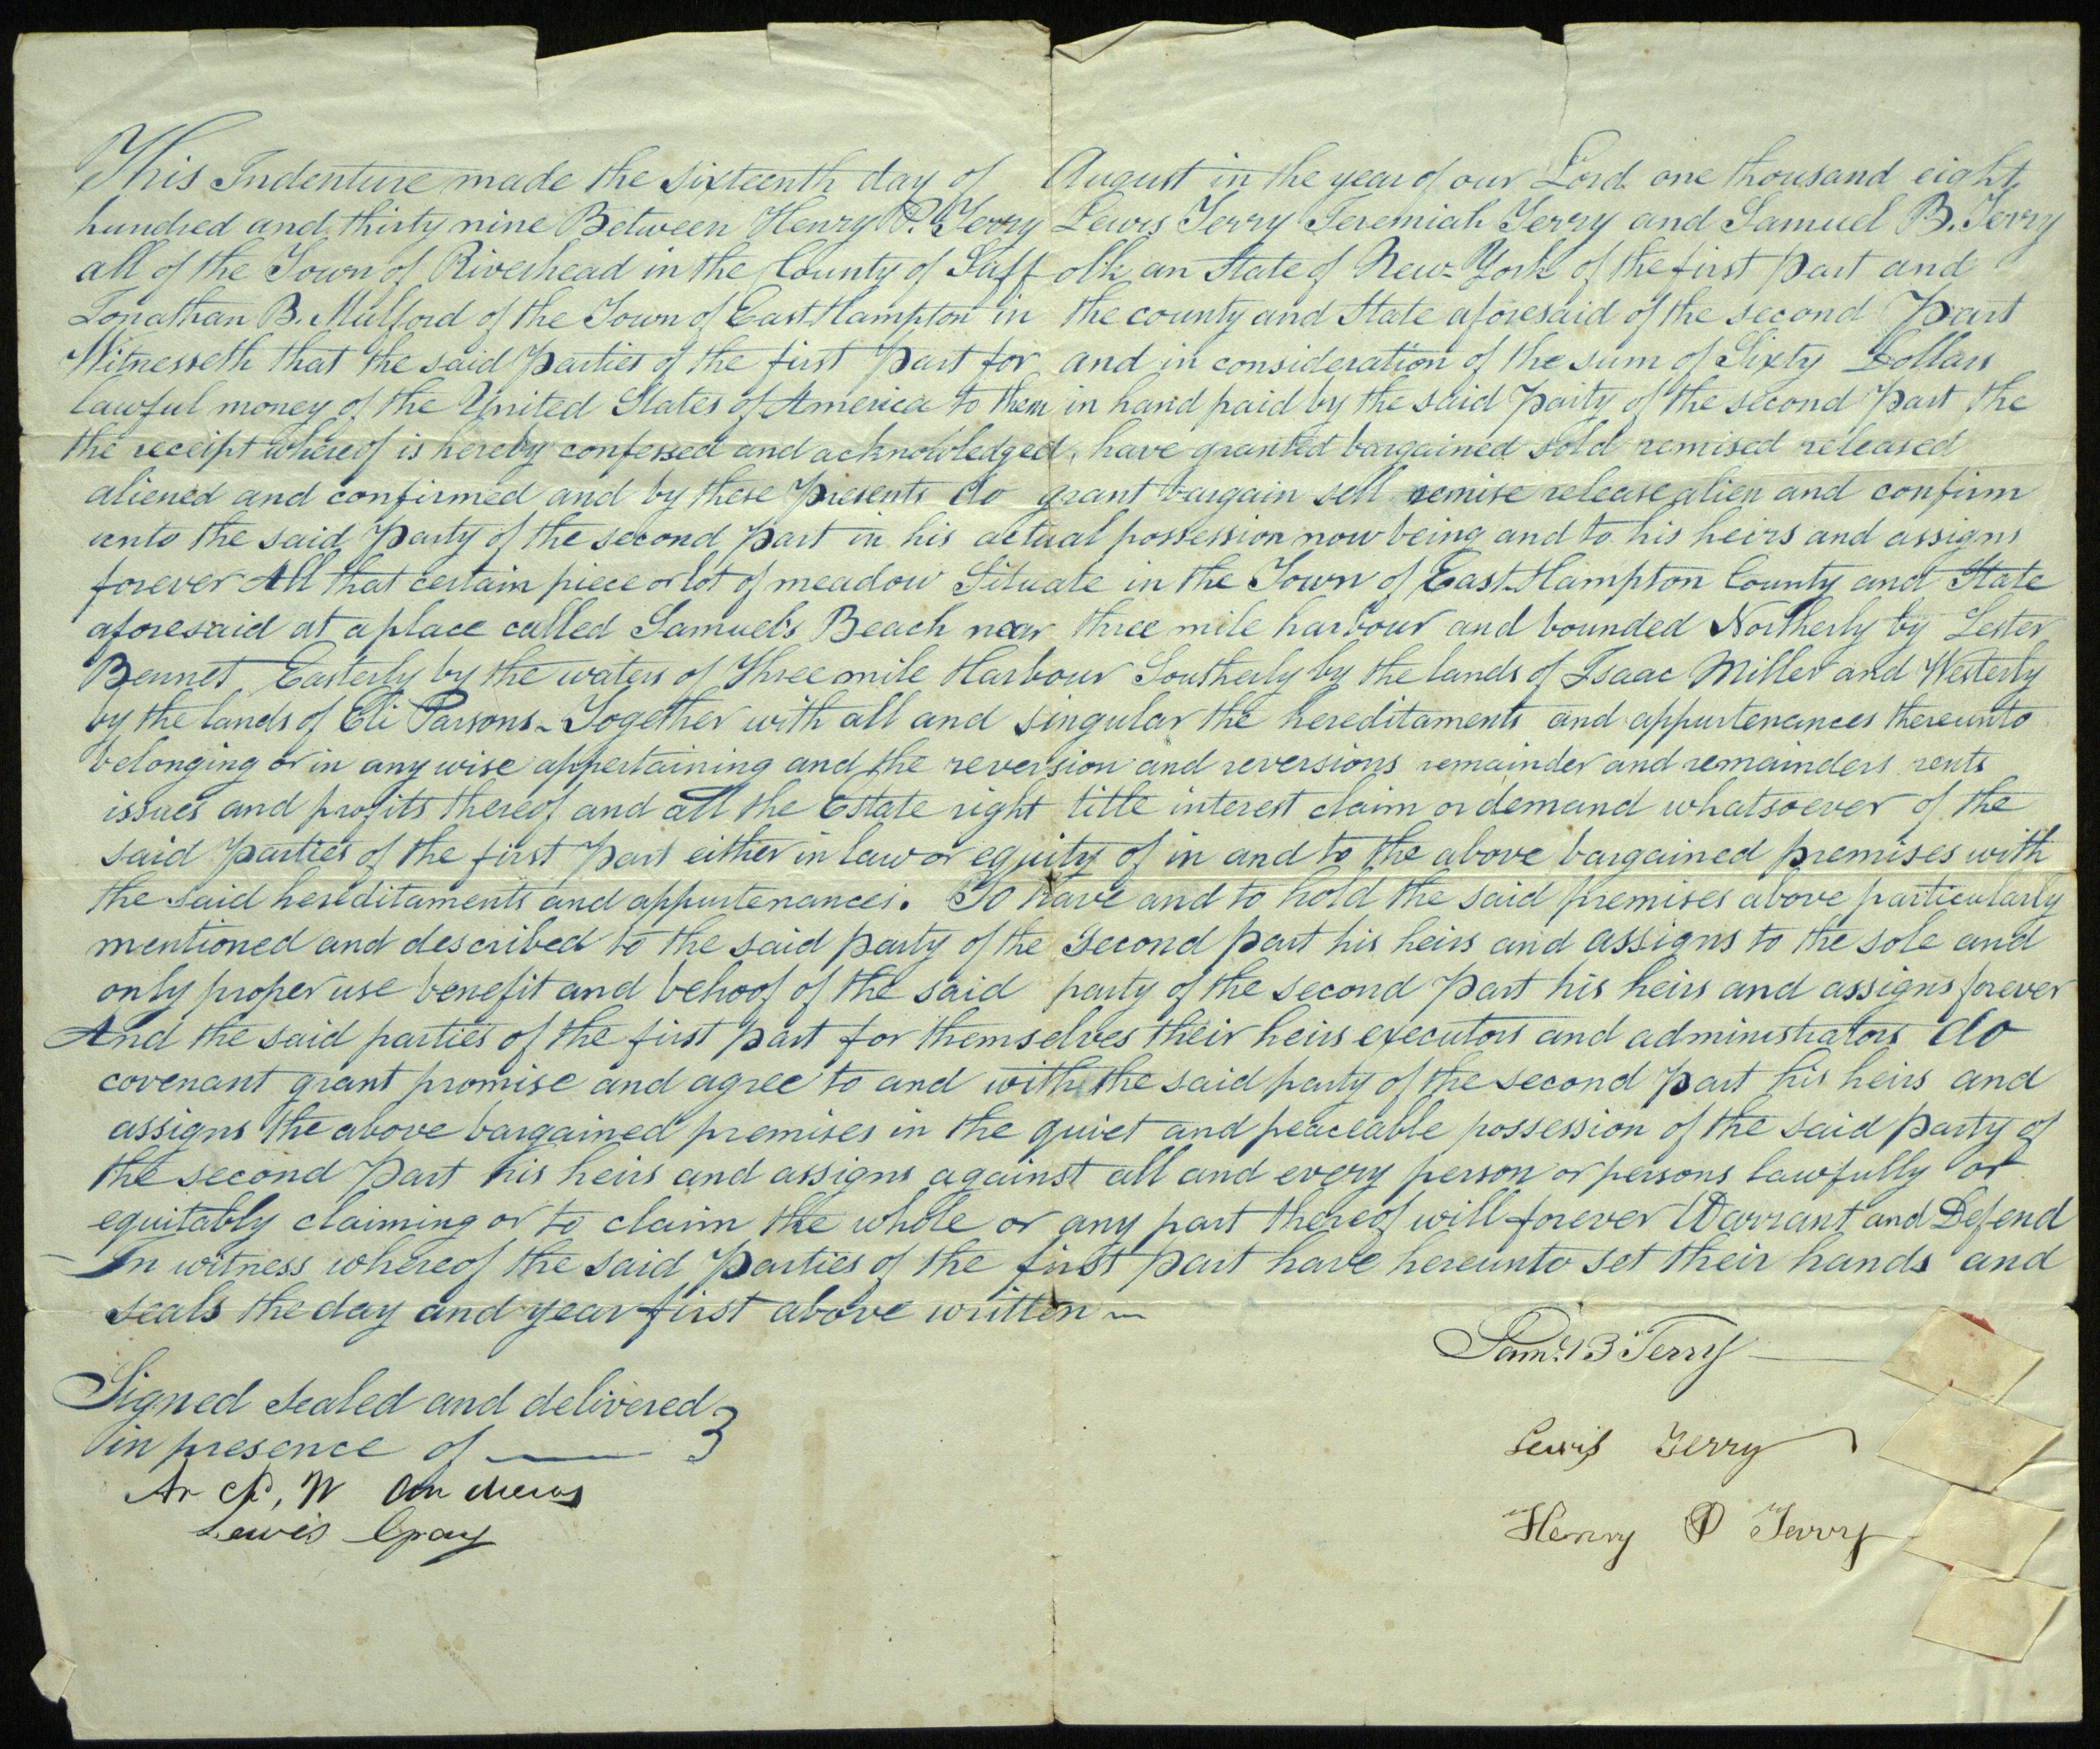 This Indenture made the sixteenth day of August in the year of our Lord one thousand eight
hundred and thirty nine Between Henry P. Terry Lewis Terry Jeremiah Terry and Samuel B. Terry
all of the Town of Riverhead in the County of Suffolk an State of New-York of the first part and
Jonathan B. Mulford of the Town of East Hampton in the county and State aforesaid of the second Part
Witnesseth that the said Parties of the first Part for and in consideration of the sum of Sixty Dollars
lawful money of the United States of America to them in hand paid by the said Party of the second Part the
the receipt whereof is hereby confessed and acknowledged, have granted bargained sold remised released
aliened and confirmed and by these Presents do grant bargain sell remise release alien and confirm
unto the said Party of the second Part in his actual possession now being and to his heirs and assigns
forever All that certain piece or lot of meadow Situate in the Town of East-Hampton County and State
aforesaid at a place called Samuel's Beach near three mile harbour and bounded Northerly by Lester
Bennet Easterly by the waters of Three mile Harbour Southerly by the lands of Isaac Miller and Westerly
by the lands of Eli Parsons - Together with all and singular the hereditaments and appurtenances thereunto
belonging or in any wise appertaining and the reversion and reversions remainder and remainders rents
issues and profits thereof and all the Estate right title interest claim or demand whatsoever of the
said Parties of the first Part either in law or equity of in and to the above bargained premises with
the said hereditaments and appurtenances. To have and to hold the said premises above particularly
mentioned and described to the said party of the second part his heirs and assigns to the sole and
only proper use benefit and behoof of the said party of the second Part his heirs and assigns forever
And the said parties of the first part for themselves their heirs executors and administrators do
covenant grant promise and agree to and with the said party of the second part his heirs and
assigns the above bargained premises in the quiet and peaceable possession of the said party of
the second Part his heirs and assigns against all and every person or persons lawfully or
equitably claiming or to claim the whole or any part thereof will forever Warrant and Defend
- In witness whereof the said Parties of the first part have hereunto set their hands and
seals the day and year first above written ~
Saml. B Terry
Signed sealed and delivered
in presence of
Lewis Terry
W Andrews
Lewis Gray
Henry P Terry